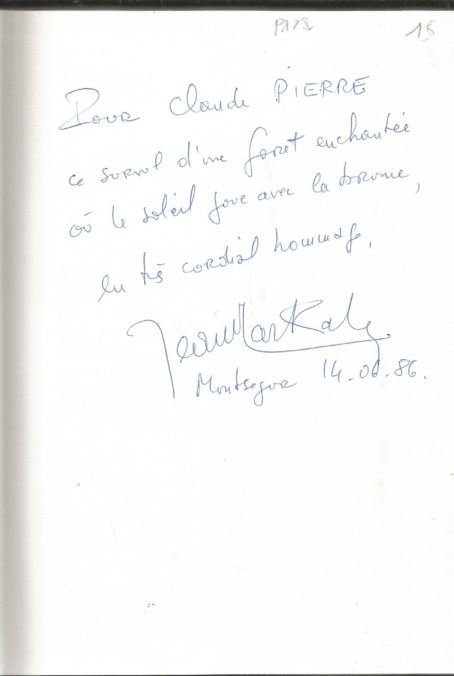 15
Pour Claude PIERRE
ce survol d'une forêt enchantée
où le soleil joue avec la brume,
en très cordial hommage,
Jean Markale
Montségur 14.08.86.